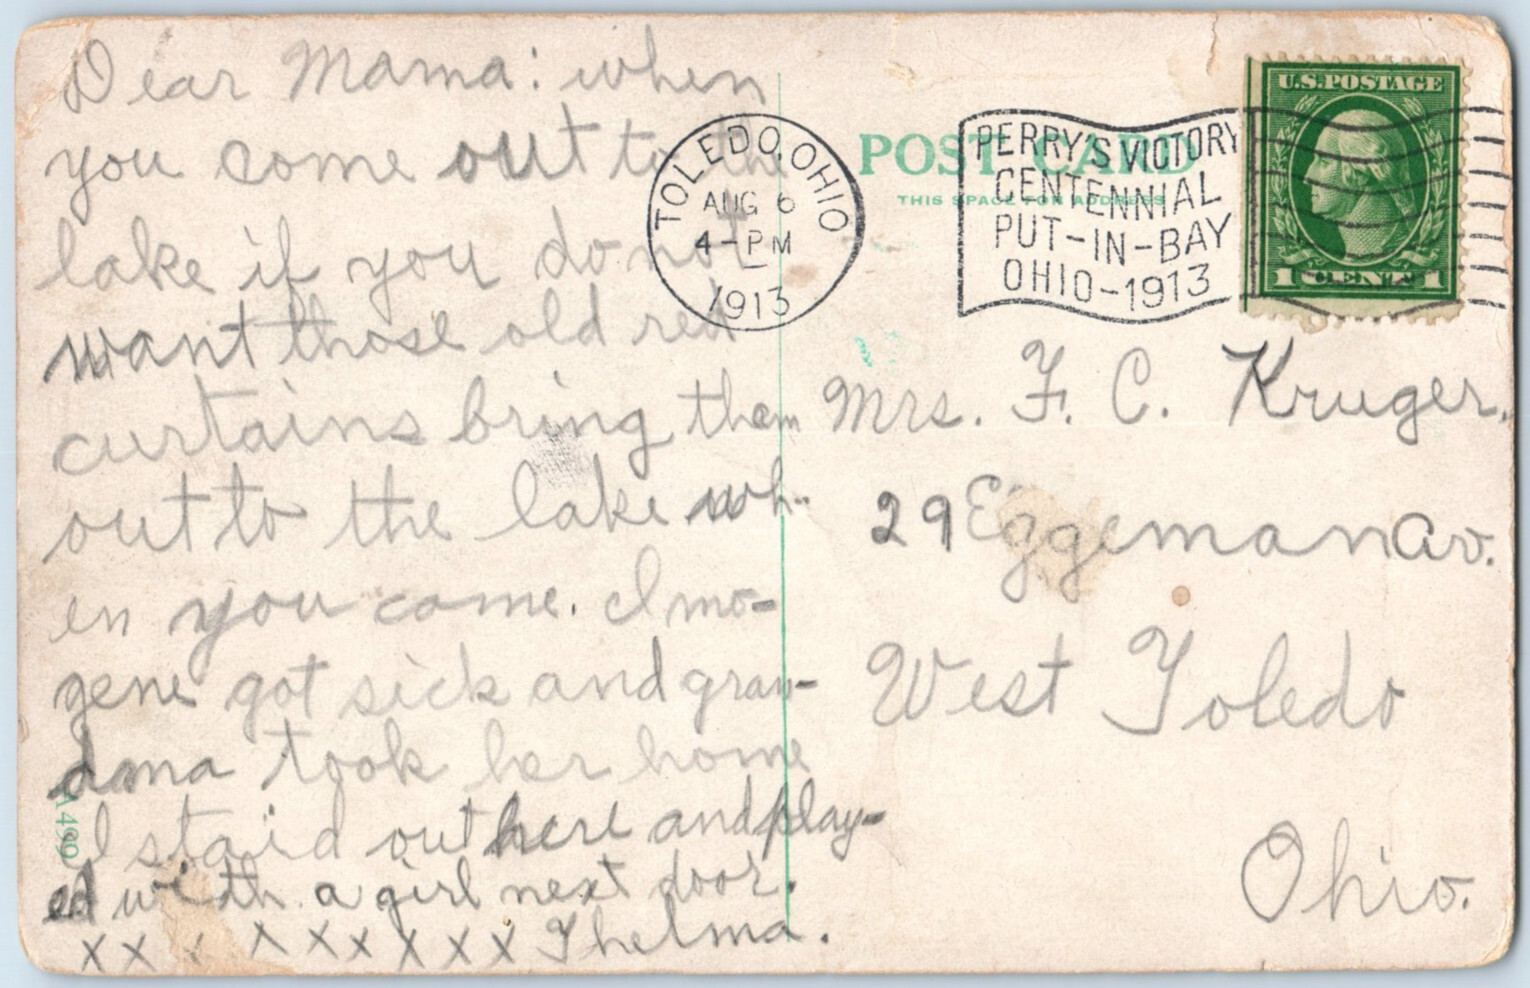 Dear Mama: when
you come out to the
lake if you do not
want those old red
curtains bring them
out to the lake wh-
en you come. Imo-
gene got sick and gran-
dma took her home
I staid out here and play-
ed with a girl next door.
x x x x x x x x x Thelma.
A 499
POST CARD
THIS SPACE FOR ADDRESS
TOLEDO, OHIO
AUG 6
4-PM
1913
PERRY'S VICTORY
CENTENNIAL
PUT-IN-BAY
OHIO-1913
U.S. POSTAGE
1 CENT 1
Mrs. F. C. Kruger.
29 Eggeman Av.
West Toledo
Ohio.